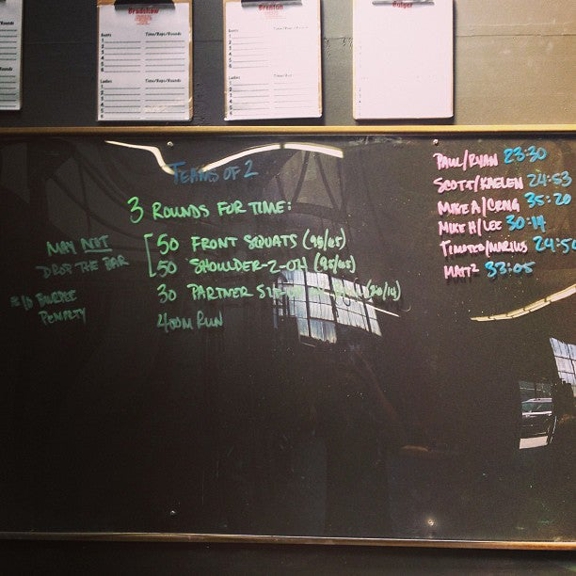 Bradshaw
Brenton
Badger
Gents
Time/Reps/Rounds
Ladies
Time/Reps/Rounds
TEAMS OF 2
3 ROUNDS FOR TIME:
50 FRONT SQUATS (95/65)
50 SHOULDER-2-OH (95/65)
30 PARTNER (20/14)
400M RUN
MAY NOT
DROP THE BAR
*10 BURPEE
PENALTY
PAUL/RYAN 23:30
SCOTT/KAELEN 24:53
MIKE A/CRAIG 35:20
MIKE H/LEE 30:14
TIMOTEO/MARIUS 24:50
MATT² 33:05